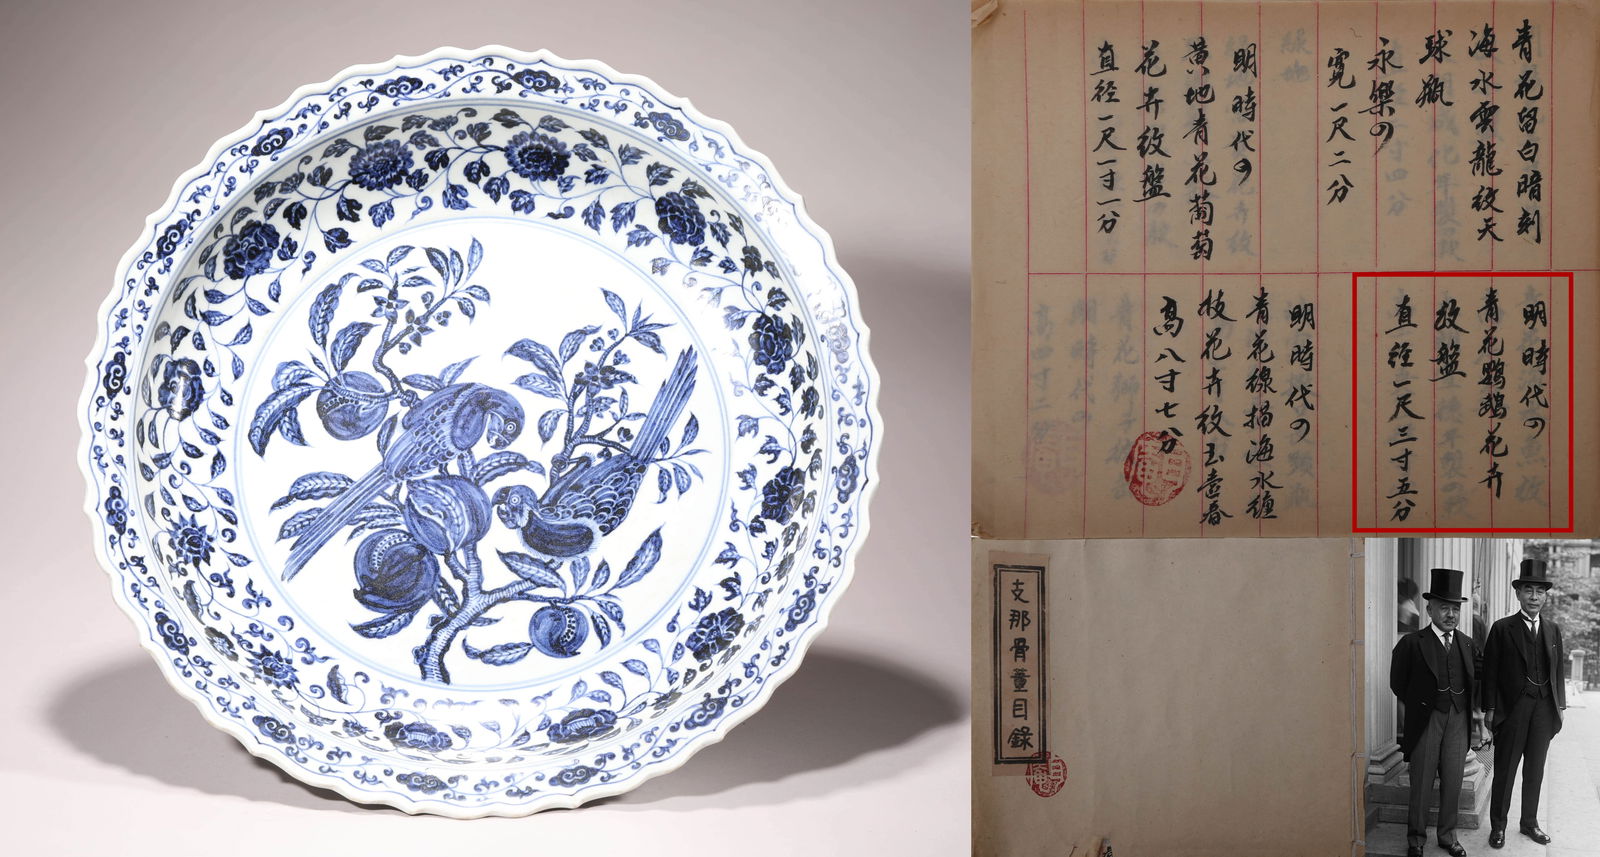 青花留白暗刻
海水雲龍紋天
球瓶
永樂の
寬一尺二分
明時代の
黄地青花葡萄
花卉紋盤
直径一尺一寸一分
明時代の
青花鸚鵡花卉
紋盤
直径一尺三寸五分
明時代の
青花線描海水纏
枝花卉紋玉壺春
高八寸七分
支那骨董目錄